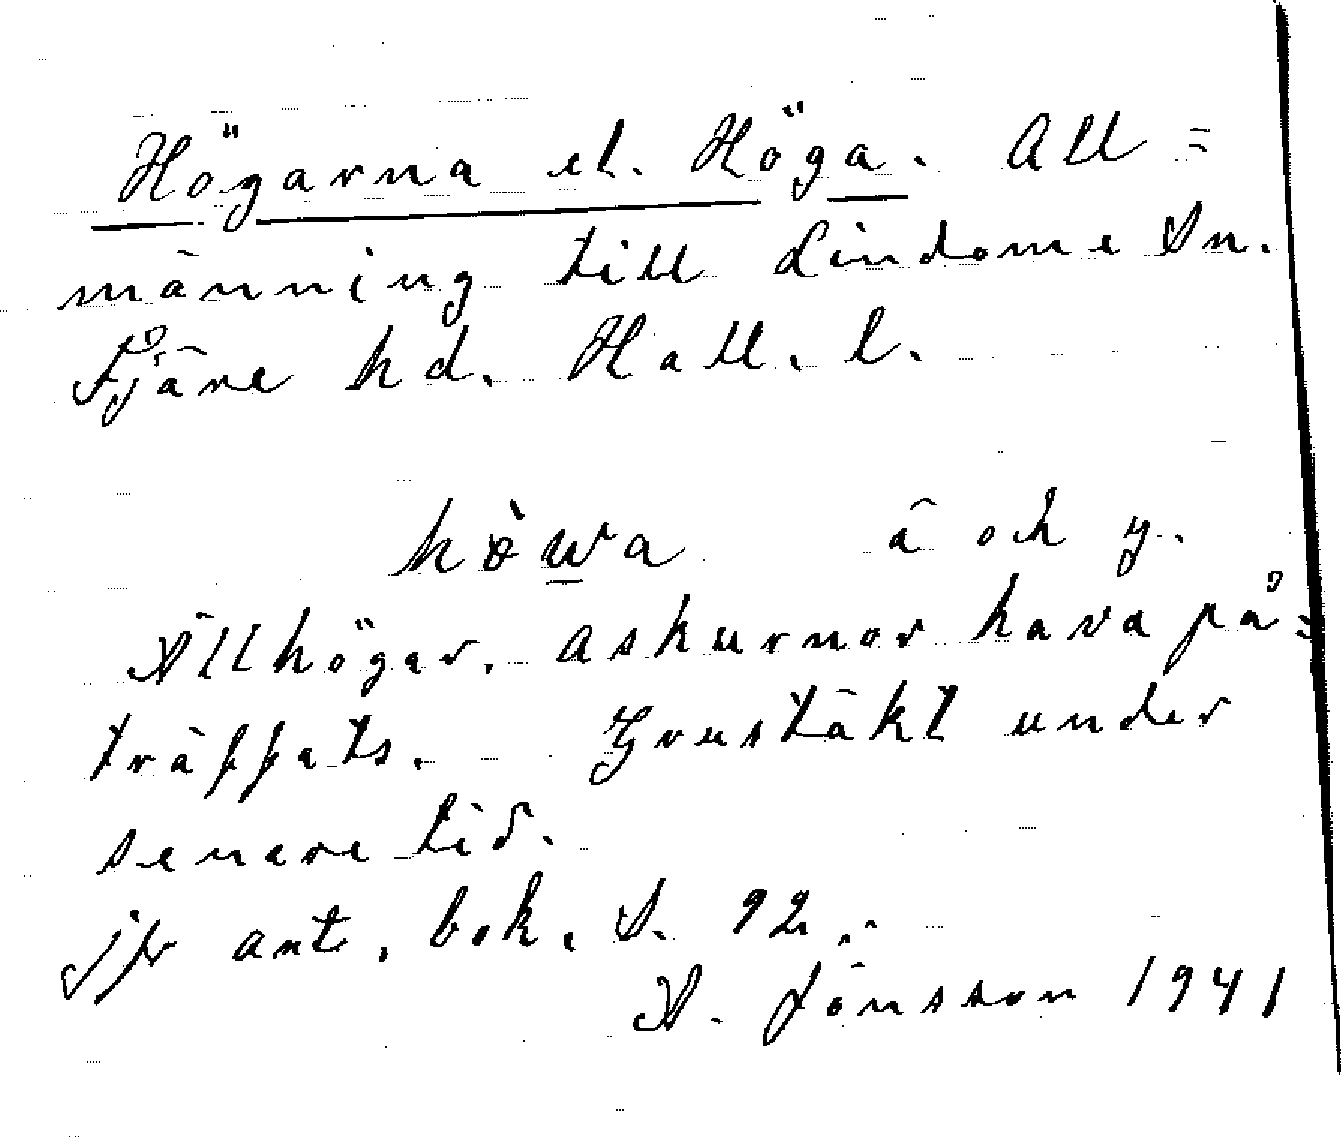 Högarna el. Höga. All=
männing till Lindome Sn.
Fjäre hd. Hall. l.
hò̵w̲a ä och y.
Ättehögar. Askurnor hava på=
träffats. Grustäkt under
senare tid.
jfr ant. bok. S. 92.
A. Jönsson 1941